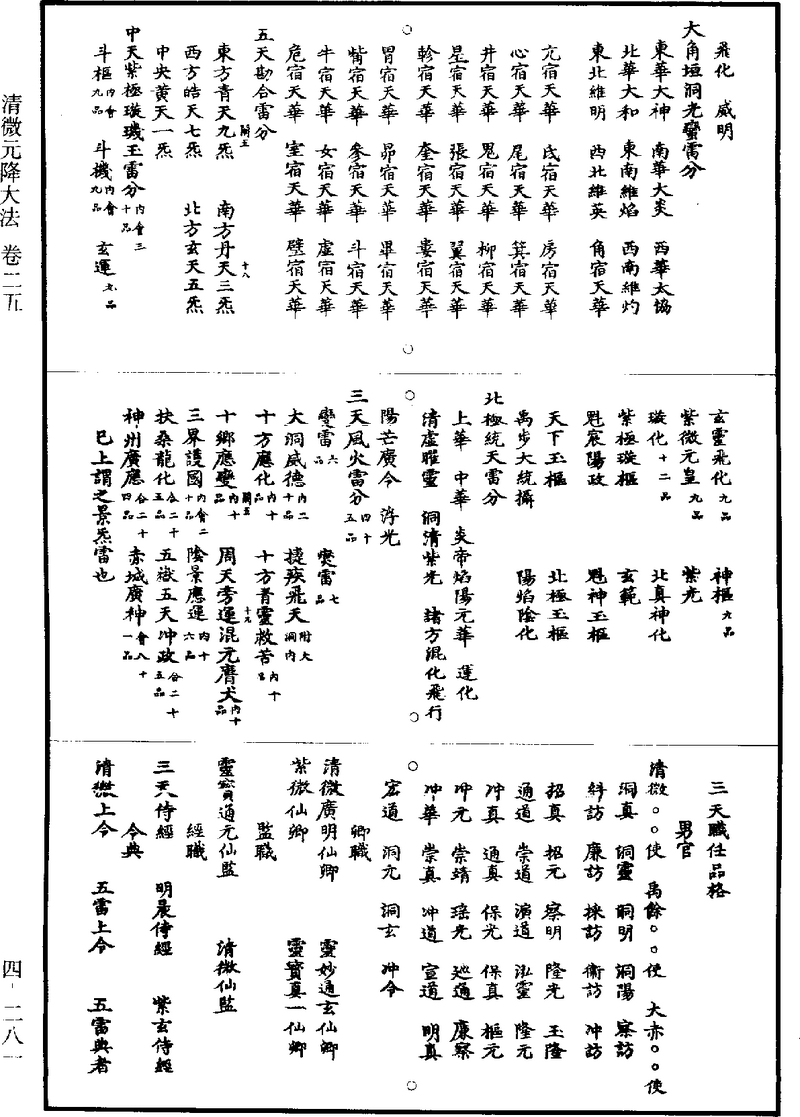 飛化　威明
大角垣洞光蠻雷分
東華大神　南華大炎　西華太協
北華大和　東南維焰　西南維灼
東北維明　西北維英　角宿天華
亢宿天華　氐宿天華　房宿天華
心宿天華　尾宿天華　箕宿天華
井宿天華　鬼宿天華　柳宿天華
星宿天華　張宿天華　翼宿天華
軫宿天華　奎宿天華　婁宿天華
胃宿天華　昴宿天華　畢宿天華
觜宿天華　參宿天華　斗宿天華
牛宿天華　女宿天華　虛宿天華
危宿天華　室宿天華　壁宿天華
五天勘合雷分
東方青天九炁　南方丹天三炁
關五　十八
西方皓天七炁　北方玄天五炁
中央黄天一炁
中天紫極璇璣玉雷分內會三十品
斗樞內會九品　斗機內會九品　玄運九品
玄靈飛化九品　神樞六品
紫微元皇九品　紫光
璇化十二品　北真神化
紫極璇樞　玄範
魁宸陽政　魁神玉樞
天下玉樞　北極玉樞
禹步大統攝　陽焰陰化
北極統天雷分
上華　中華　炎帝焰陽元華　運化
清虛曜靈　洞清紫光　諸方混化飛行
陽芒廣令　浮光
三天風火雷分四十五品
變雷六品　燮雷七品
大洞威德內二十品　捷疾飛天附大洞內
十方應化內十品　十方青靈救苦內十
十鄉應變內十品　周天旁運混元磨犬內十品
關五　十九
三界護國內會二十品　陰景應運內十六品
扶桑龍化合二十五品　五嶽五天冲政合二十五品
神州廣應合二十四品　赤城廣神會八十一品
已上謂之景炁雷也
三天職任品格
男官
清微○○使　禹餘○○使　大赤○○使
洞真　洞靈　洞明　洞陽　察訪
糾訪　廉訪　採訪　衞訪　冲訪
招真　招元　察明　隆光　玉隆
通道　崇道　演道　泓靈　隆元
冲真　通真　保光　保真　樞元
冲元　崇靖　瑶光　巡通　康察
冲華　崇真　冲道　宣道　明真
宏通　洞元　洞玄　冲令
卿職
清微廣明仙卿　靈妙通玄仙卿
紫微仙卿　靈寶真一仙卿
監職
靈寶通元仙監　清微仙監
經職
三天侍經　明晨侍經　紫玄侍經
令典
清微上令　五雷上令　五雷典者
清微元降大法　卷二五
四-二八一